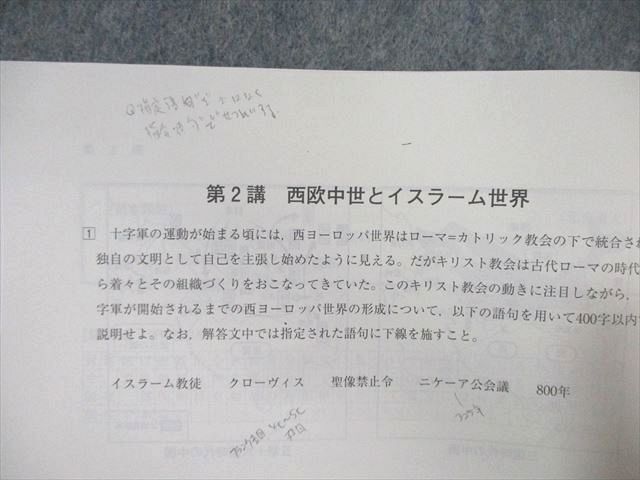 第2講 西欧中世とイスラーム世界
1 十字軍の運動が始まる頃には，西ヨーロッパ世界はローマ＝カトリック教会の下で統合され
独自の文明として自己を主張し始めたように見える。だがキリスト教会は古代ローマの時代
ら着々とその組織づくりをおこなってきていた。このキリスト教会の動きに注目しながら，
字軍が開始されるまでの西ヨーロッパ世界の形成について，以下の語句を用いて400字以内
説明せよ。なお，解答文中では指定された語句に下線を施すこと。
イスラーム教徒 クローヴィス 聖像禁止令 ニケーア公会議 800年
325年